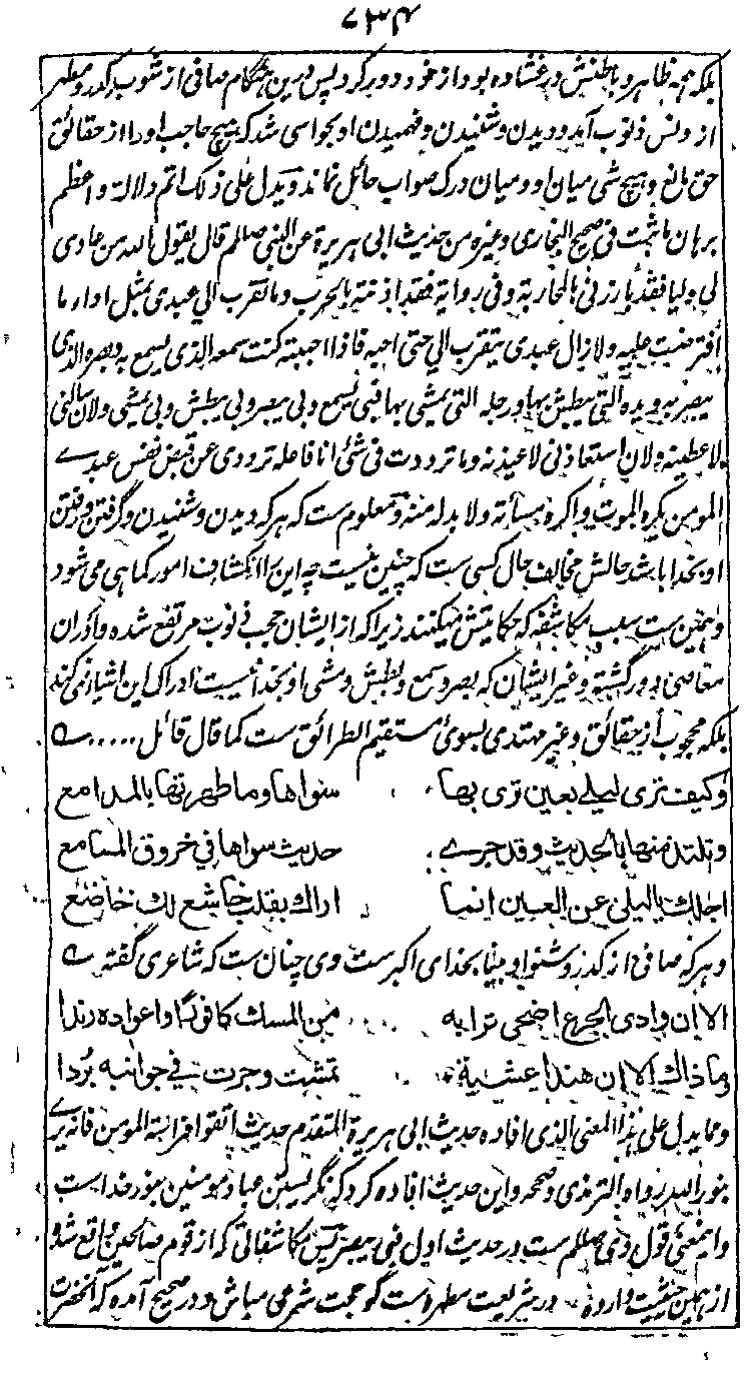 ۷۳۴
بلکہ ہمہ ظاہر و باطنش در غشاوہ بود از خود دور کرد پس درین ہنگام صافی از شوب کدر و مطہر
از دنس ذنوب آید و دیدن و شنیدن و فہمیدن او بحواسی شد کہ ہیچ حاجب او را از حقائق
حق مانع و ہیچ شی میان او و میان درک صواب حائل نماند و یدل علی ذلک اتم دلالۃ و اعظم
برہان ما ثبت فی صحیح البخاری و غیرہ من حدیث ابی ہریرۃ عن النبی صلعم قال یقول اللہ من عادی
لی ولیا فقد بارزنی بالمحاربۃ و فی روایۃ فقد اذنتہ بالحرب و ما تقرب الی عبدی بمثل اداء ما
افترضت علیہ و لا زال عبدی یتقرب الی حتی احبہ فاذا احببتہ کنت سمعہ الذی یسمع بہ و بصرہ الذی
یبصر بہ و یدہ التی یبطش بہا و رجلہ التی یمشی بہا فبی یسمع و بی یبصر و بی یبطش و بی یمشی و لان سالنی
لاعطینہ و لان استعاذنی لاعیذنہ و ما ترددت فی شئ انا فاعلہ ترددی عن قبض نفس عبدے
المومن یکرہ الموت و اکرہ مساتہ و لا بد لہ منہ و معلوم ست کہ ہر کہ دیدن و شنیدن و گرفتن و رفتن
او بخدا باشد حالش مخالف حال کسی ست کہ چنین نیست چہ این را انکشاف امور کما ہی می شود
و ہمین ست سبب مکاشفہ کہ حکایتش میکنند زیرا کہ از ایشان حجب ذنوب مرتفع شدہ و ادران
معاصی دور گشتہ و غیر ایشان کہ بصر و سمع و بطش و مشی او بخدا نیست ادراک این اشیا نمی کند
بلکہ محجوب از حقائق و غیر مہتدی بسوئ مستقیم الطرائق ست کما قال قائل .....
وكيف ترى ليلے بعين ترى بها سواها وما طهرتها بالمدامع
وتلتذ منها بالحديث وقد جرے حديث سواها في خروق المسامع
اجلك يا ليلى عن العين انما اراك بقلب خاشع لك خاضع
و ہر کہ صافی از کدر و شنوا و بینا بخدای اکبر ست وی چنان ست کہ شاعری گفتہ
الا ان وادى الجزع اضحى ترابه من المسك كافورا واعواده رندا
وما ذاك الا ان هندا عشية تمشت وجرت في جوانبه بردا
و مما یدل علی ہذا المعنی الذی افادہ حدیث ابی ہریرۃ المتقدم حدیث اتقوا فراسۃ المومن فانہ یرے
بنور اللہ رواہ الترمذی و صححہ و این حدیث افادہ کرد کہ نگریستن عباد مومنین بنور خداست
و اینمعنی قول وی صلعم ست در حدیث اول فبی یبصر پس مکاشفاتی کہ از قوم صالحین واقع شد
از ہمین حیثیت واردہ در شریعت مطہرہ است گو حجت شرعی مباش و در صحیح آمدہ کہ آنحضرت